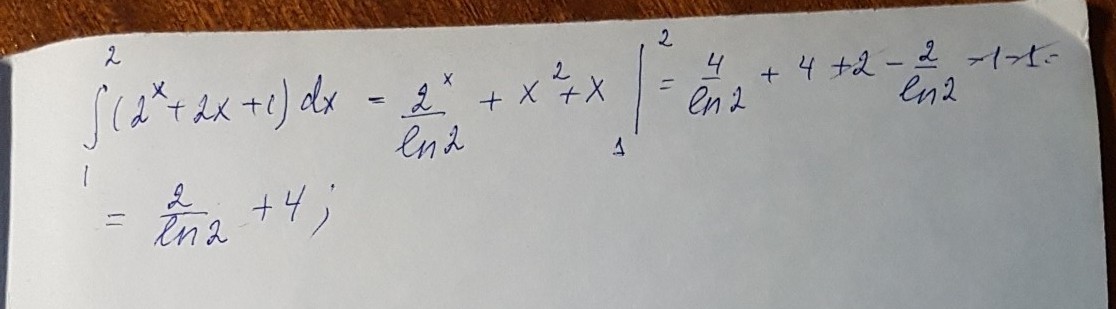 ∫₁² (2ˣ + 2x + 1) dx = 2ˣ/ln2 + x² + x |₁² = 4/ln2 + 4 + 2 - 2/ln2 - 1 - 1 =
= 2/ln2 + 4;